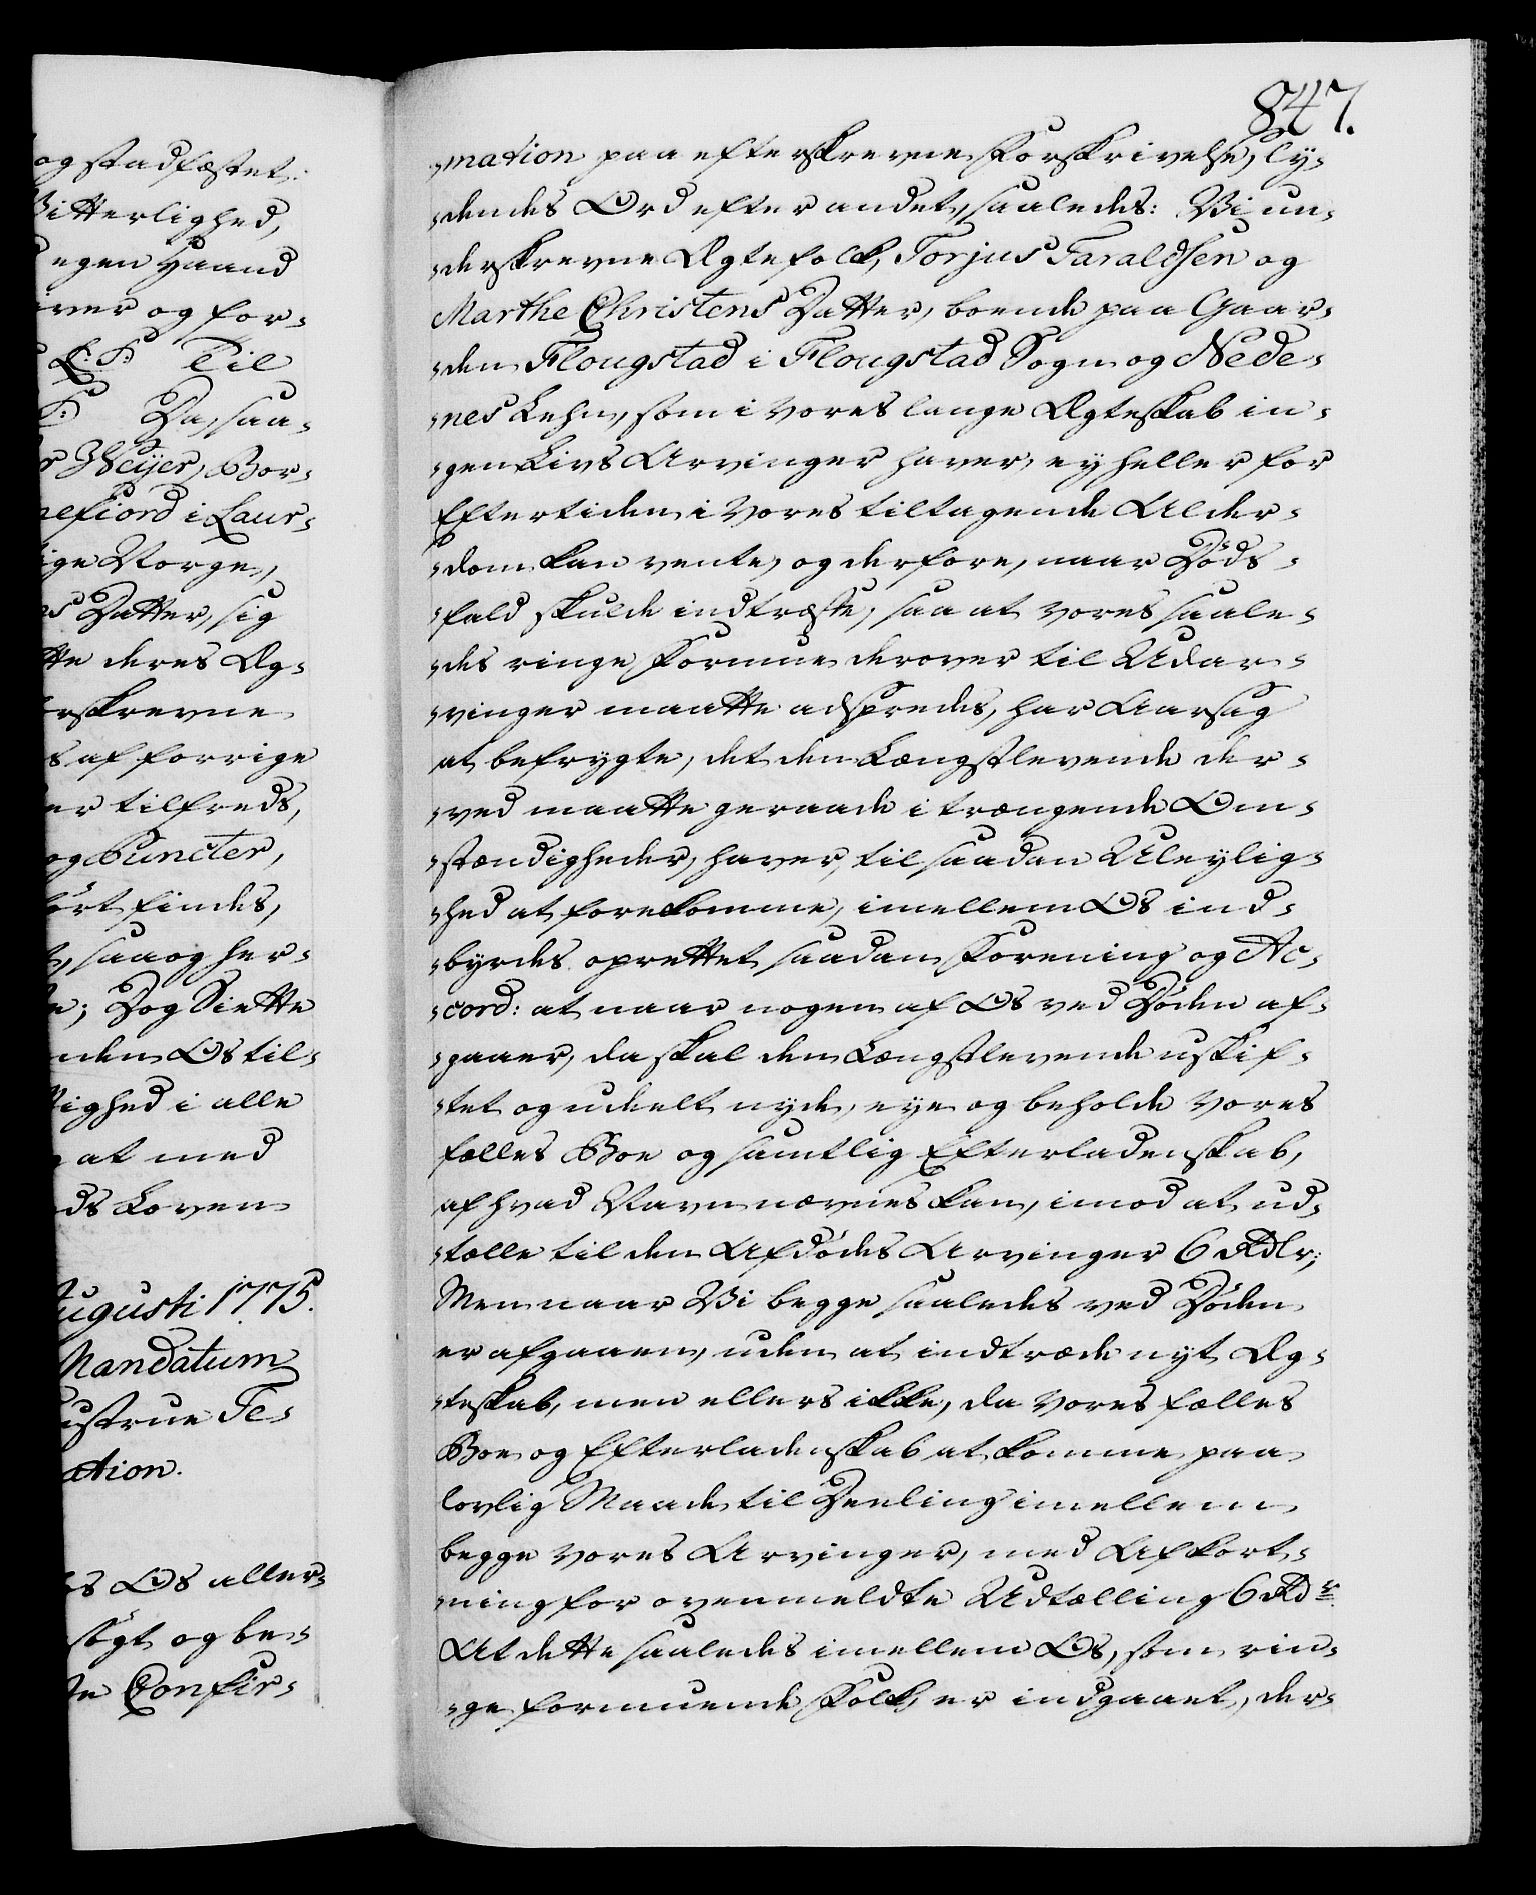 og stadfæstet:
Vitterlighed,
egen Haand
iver og for-
L: S: Til
S: Da, saa-
r Weijer, Bor-
nefiord i Laur-
ige Norge,
ns Datter, sig
tte deres Æg-
erskrevne
s af forrige
er tilfreds,
og Puncter,
fört findes,
t, saa og her-
de; Dog Siette
nden Os til-
tighed i alle
at med
ds Loven
Augusti 1775.
Mandatum
ustrue Te-
ation.
es Os aller-
sögt og be-
te Confir-
847.
-mation paa efterskrevne Forskrivelse, ly-
-dendes Ord efter andet, saaledes: Vi un-
-derskrevne Ægtefolk, Torjus Taraldsen og
Marthe Christens Datter, boende paa Gaar-
-den Flougstad i Flougstad Sogn og Nede-
-nes Lehn, som i vores lange Ægteskab in-
-gen Livs Arvinger haver, ey heller for
Eftertiden i vores tiltagende Alder-
-dom kan vente, og derfore, naar Döds-
-fald skulde indtræffe, saa at vores saale-
-des ringe Formue derover til Udar-
-vinger maatte adspredes, har Aarsag
at befrygte, det den Længstlevende der-
-ved maatte geraade i trængende Om-
-stændigheder, haver, til saadan Uleylig-
-hed at forekomme, imellem Os ind-
-byrdes oprettet saadan Forening og Ac-
-cord: at naar nogen af Os ved Döden af-
-gaaer, da skal den Længstlevende uskif-
-tet og udeelt nyde, eye og beholde vores
fælles Boe og samtlig Efterladenskab,
af hvad Navn nævnes kan, imod at ud-
-tælle til den Afdödes Arvinger 6 Rdlr;
Men naar Vi begge saaledes ved Döden
er afgaaen, uden at indtræde nyt Æg-
-teskab, men ellers ikke, da vores fælles
Boe og Efterladenskab at komme paa
lovlig Maade til Deeling imellem
begge vores Arvinger, med Afkort-
-ning for ovenmeldte Udtælling 6 Rdr.
At dette saaledes imellem Os, som rin-
-ge formuende Folk, er indgaaet, der-